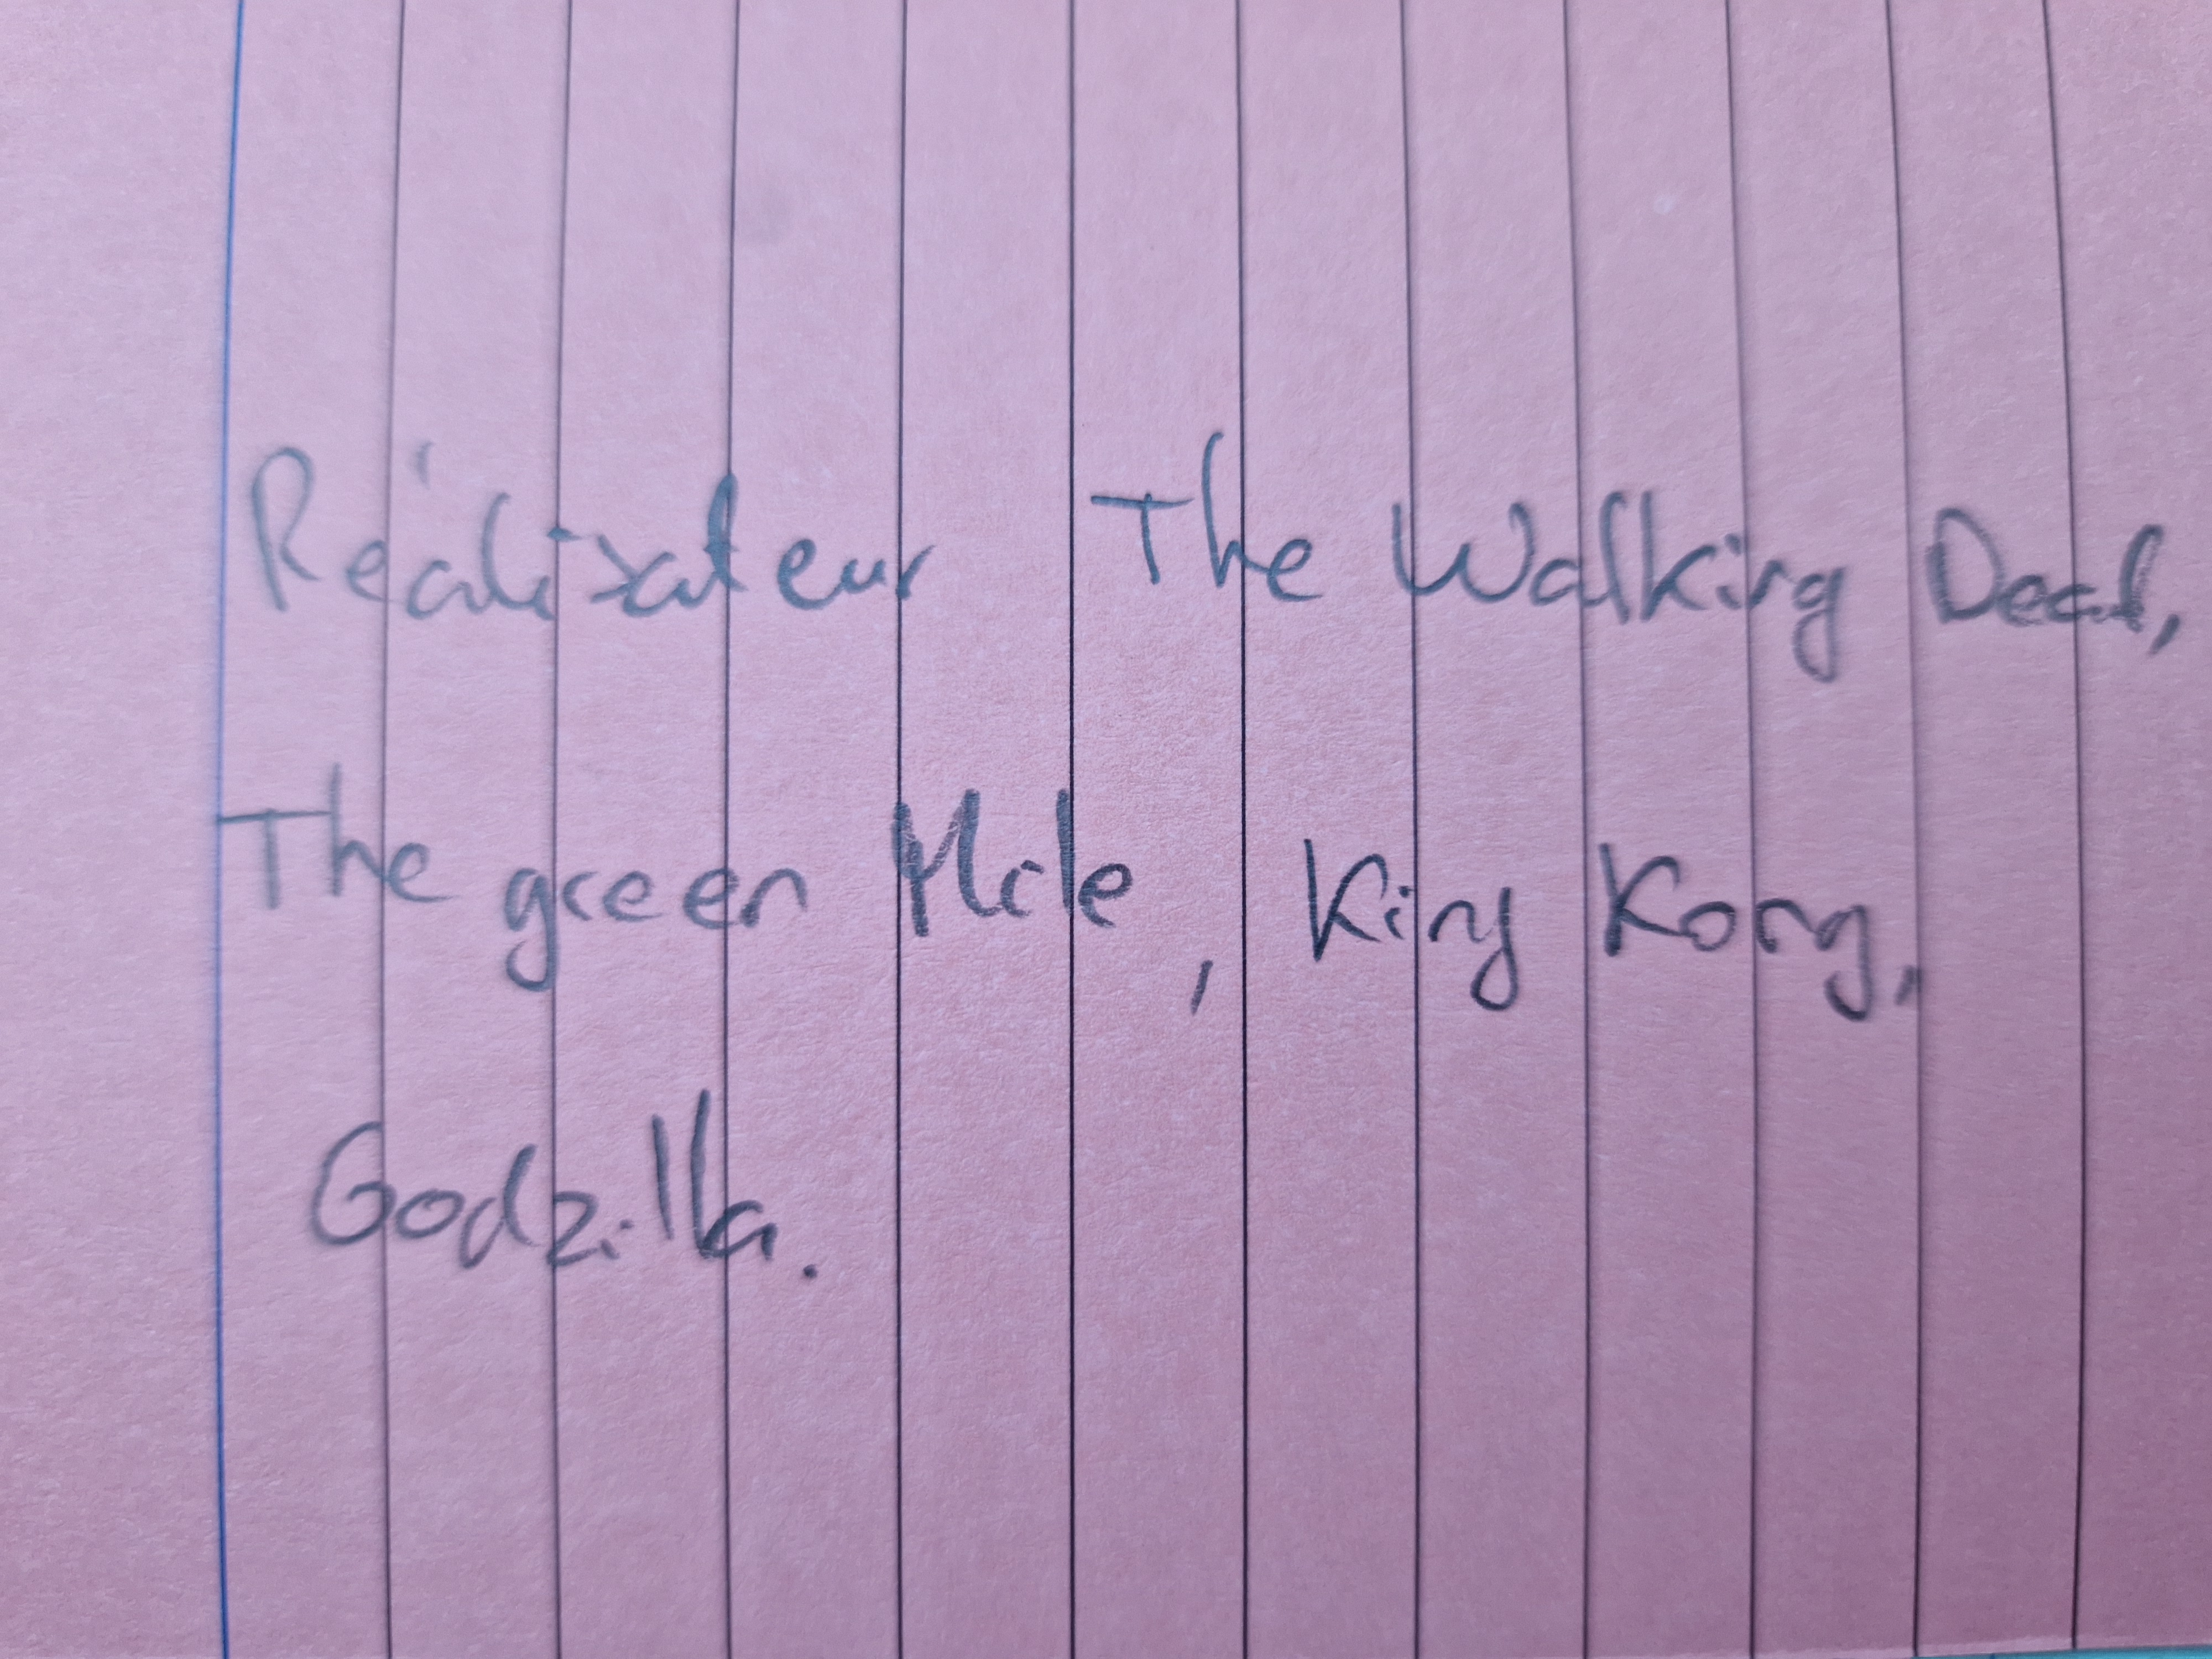 Réalisateur The Walking Dead,
The green Mile, King Kong,
Godzilla.